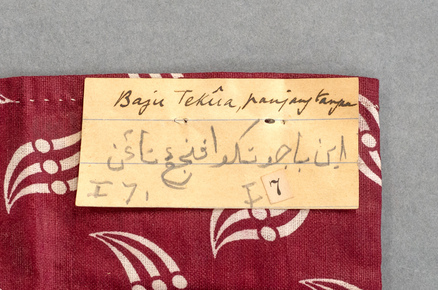 Baju Tekûa, panjang tanpa
اين باجو تكوا فنجڠ تاڠن
I 7, I 7